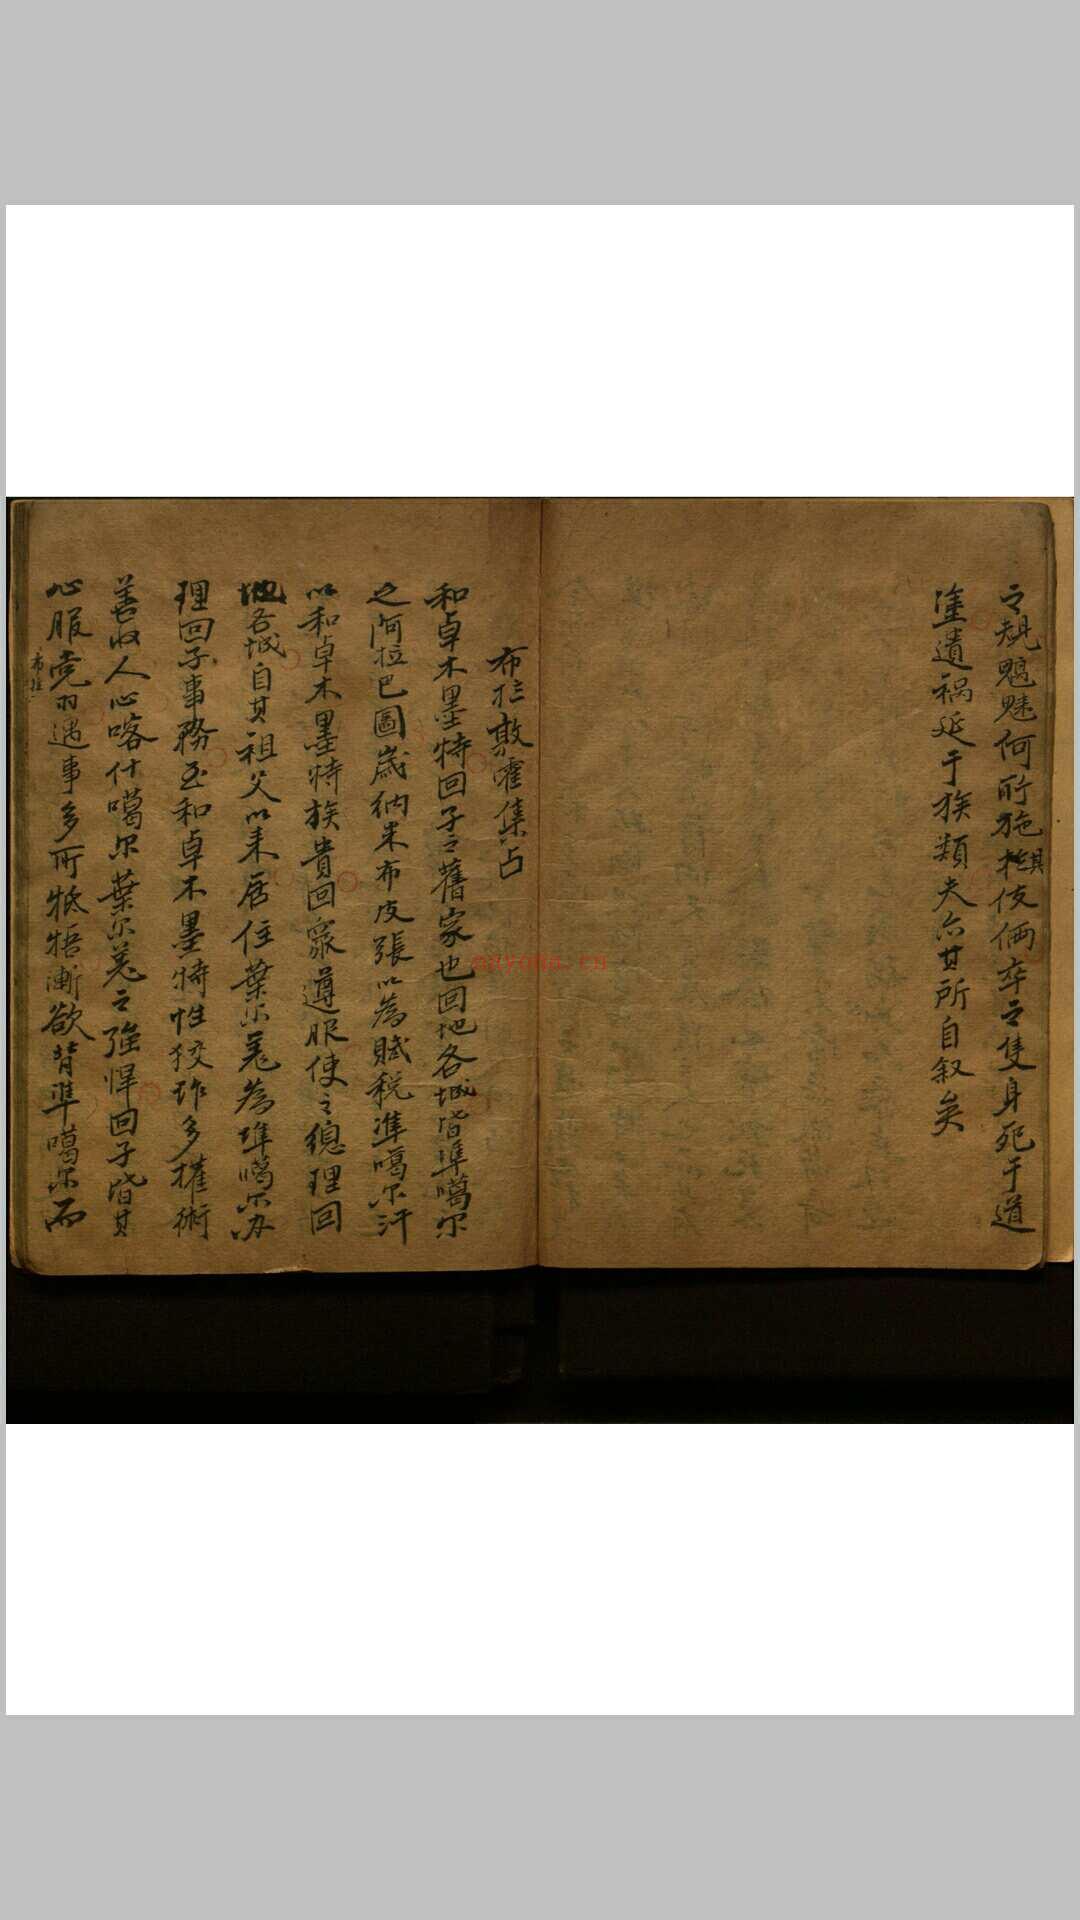 之規魍魅何所施其伎倆卒之隻身死于道
塗遺禍延于族類夫亦其所自叙矣
布拉敦霍集占
和卓木墨特回子之舊家也回地各城皆準噶尔
之阿拉巴圖歲納米布皮張以為賦税準噶尔汗
以和卓木墨特族貴回眾遵服使之總理回
地各城自其祖父以来居住葉尔羌為準噶尔办
理回子事務至和卓木墨特性狡詐多權術
善收人心喀什噶尔葉尔羌之强悍回子皆其
心服党羽遇事多所牴牾漸欲背準噶尔而
布拉
anyona.cn